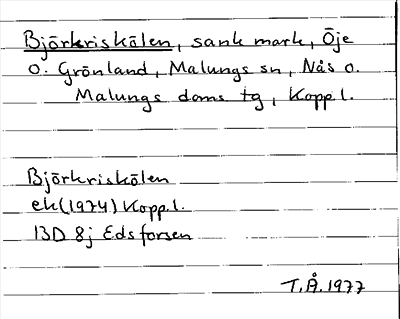 Björkriskölen, sank mark, Öje
o. Grönland, Malungs sn, Nås o.
Malungs doms tg, Kopp.l.
Björkriskölen
ek(1974) Kopp.l.
13D 8j Edsforsen
T.Å.1977